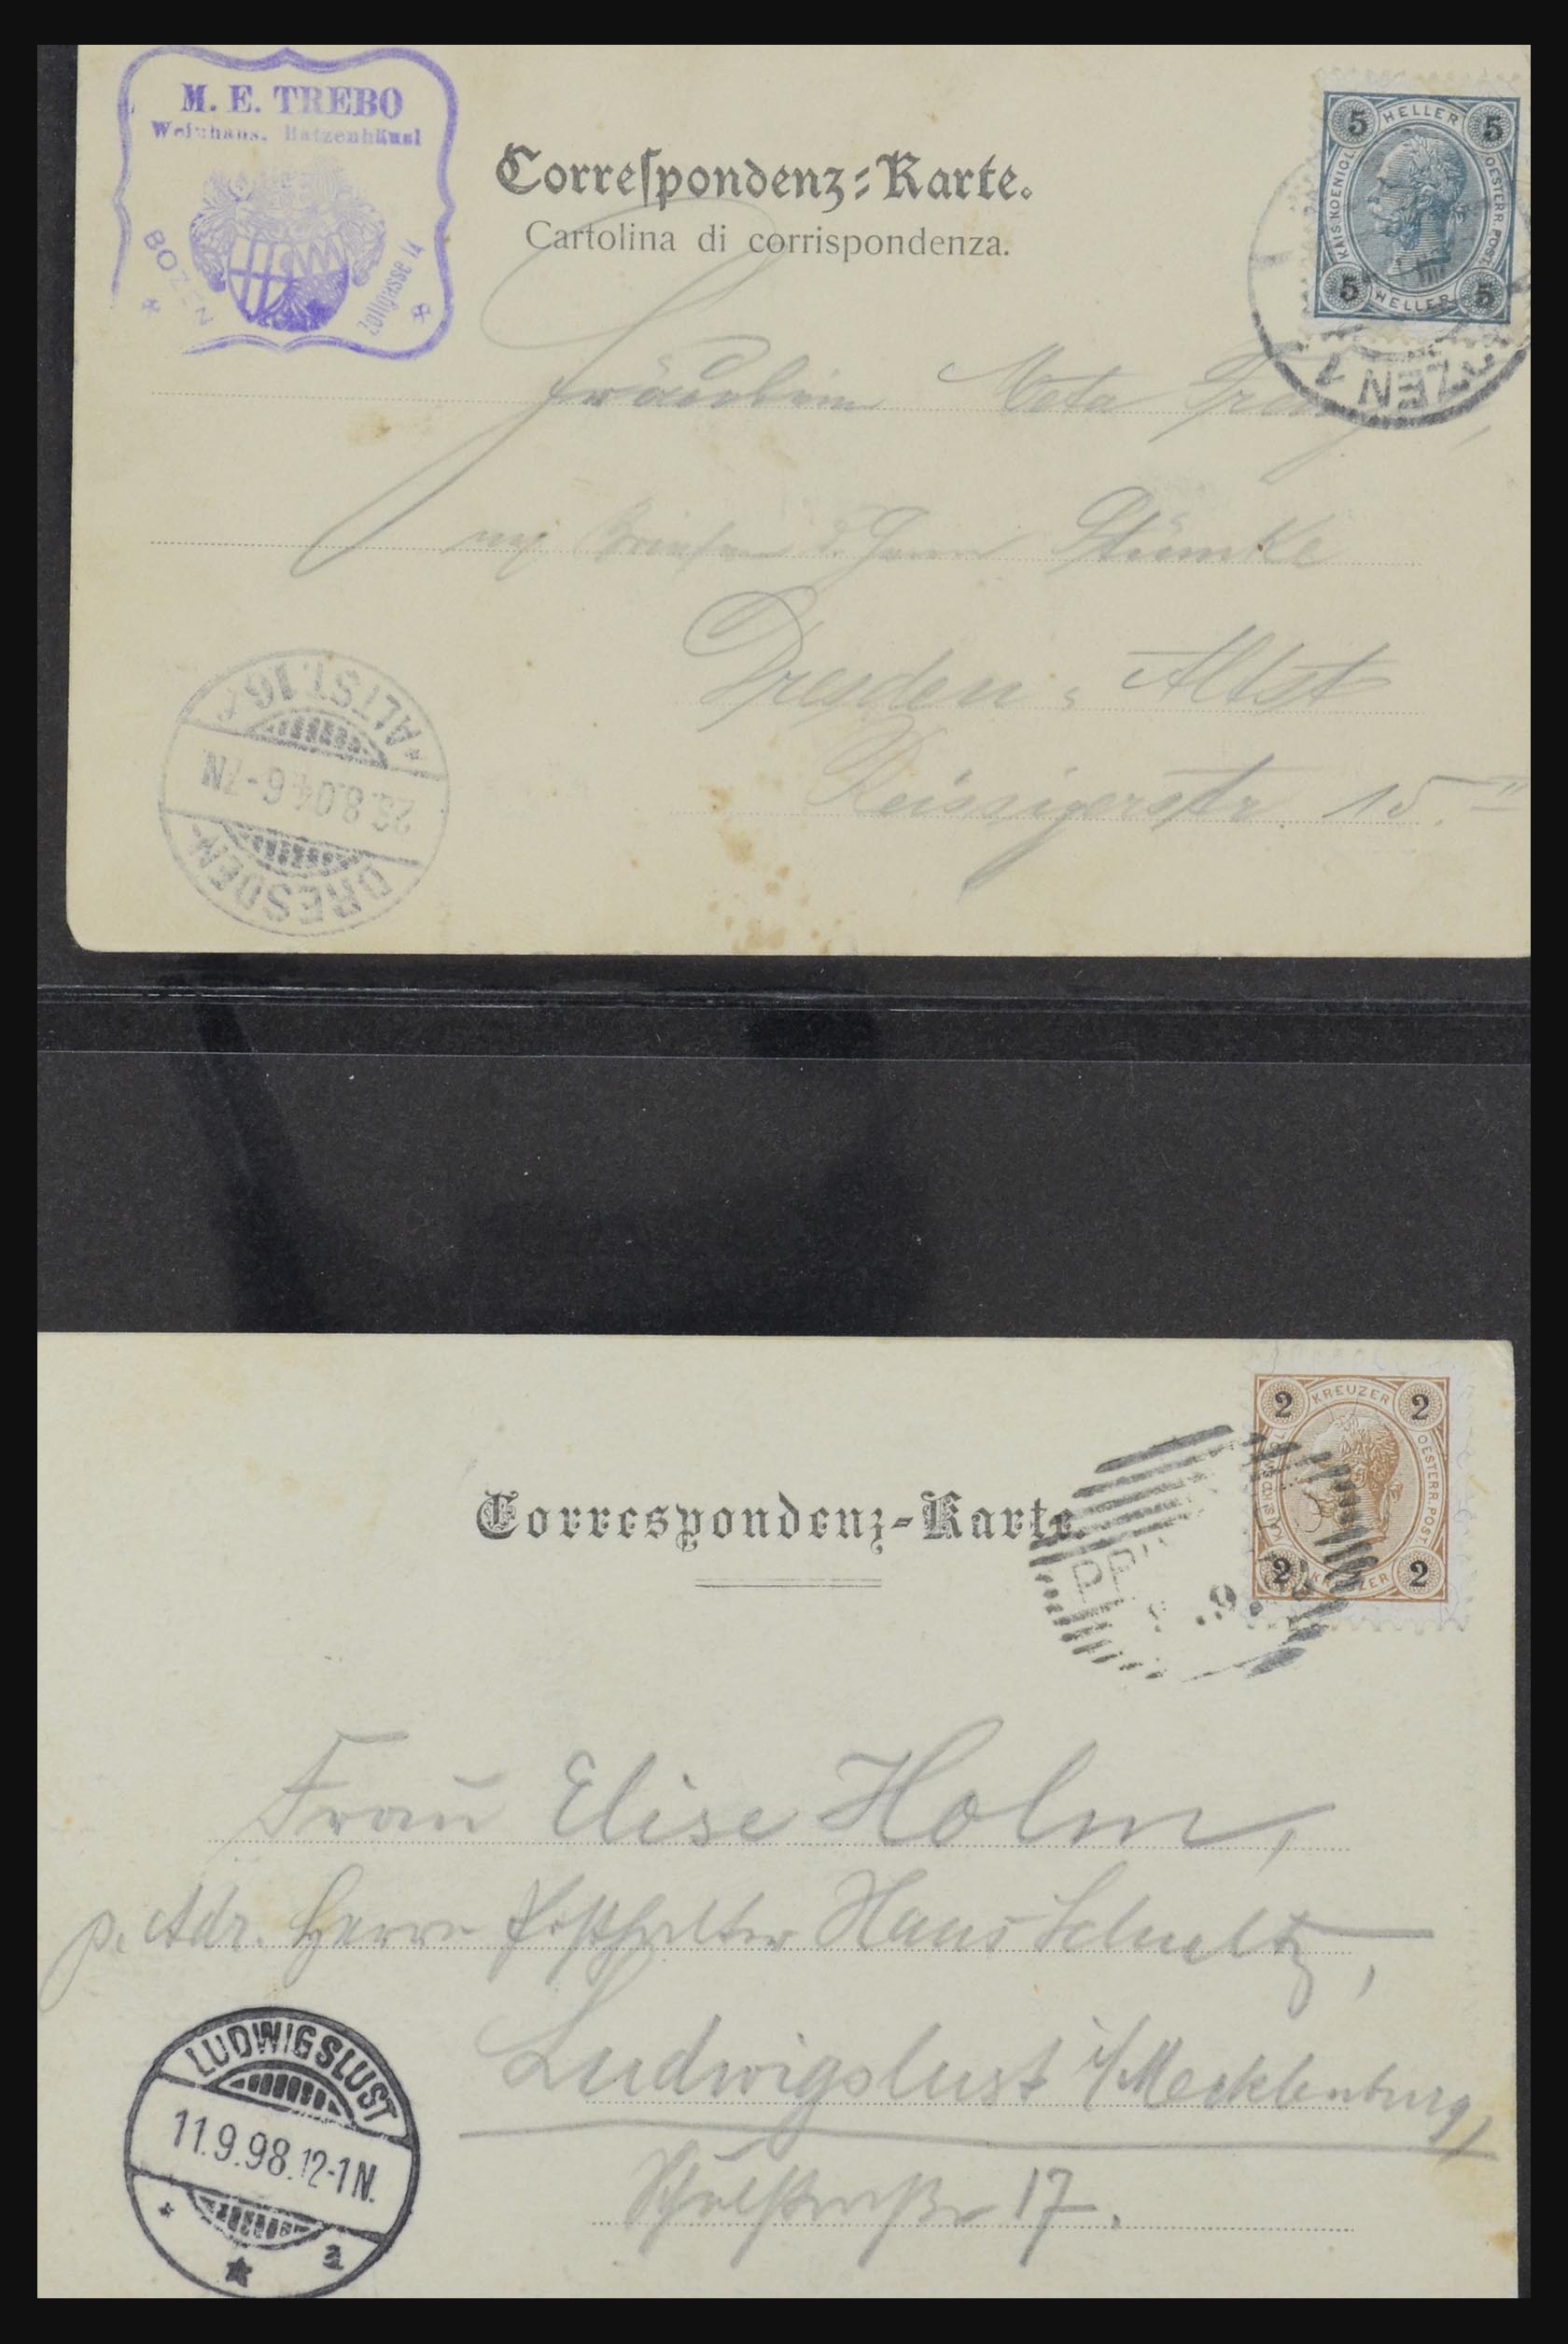 M. E. TREBO
Weinhaus. Batzenhäusl
BOZEN
Zollgasse 14
Correſpondenz-Karte.
Cartolina di corrispondenza.
5 HELLER 5
KAIS. KOENIGL. OESTERR. POST
5 HELLER 5
ZEN 1
Fräulein Meta
Stümke
Dresden-Altst
Reissigerstr. 15. II
*ALTST. 16
8.04. 6-7N
DRESDEN
2 KREUZER 2
KAIS. KOENIGL. OESTERR. POST
2 KREUZER 2
Correspondenz-Karte.
9.
Frau Elise Holm,
p. Adr. Herrn Posthalter Hans Schultz,
Ludwigslust i/Mecklenburg,
Schulstraße 17.
LUDWIGSLUST
11.9.98.12-1N.
* a